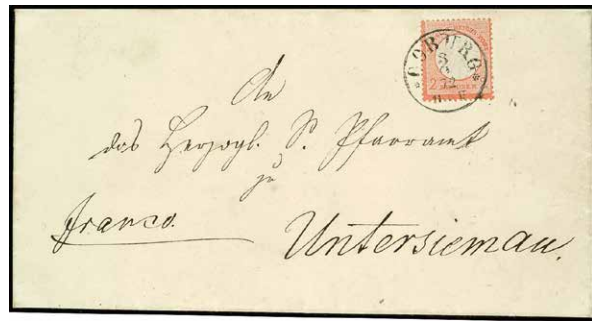 COBURG
An
das Herzogl. S. Pfarramt
zu
franco.
Untersiemau.